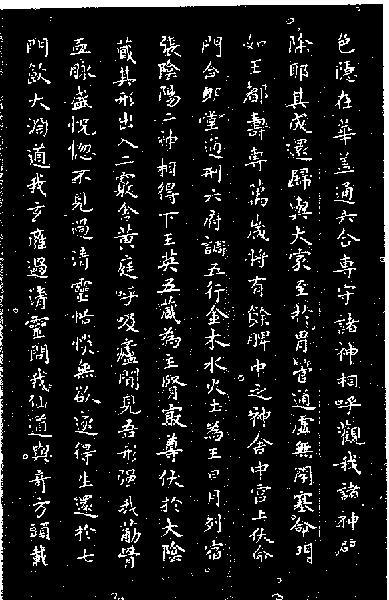 色隱在華蓋通六合專守諸神相呼觀我諸神辟
除耶其成還歸與大家至於胃管通虛無閉塞命門
如玉都壽專萬歲將有餘脾中之神舍中宮上伏命
門合明堂通利六府調五行金木水火土為王日月列宿
張陰陽二神相得下玉英五藏為主腎最尊伏於大陰
藏其形出入二竅舍黃庭呼吸廬間見吾形强我筋骨
血脉盛恍惚不見過清靈恬惔無欲遂得生還於七
門飲大淵道我玄廱過清靈問我仙道與奇方頭載